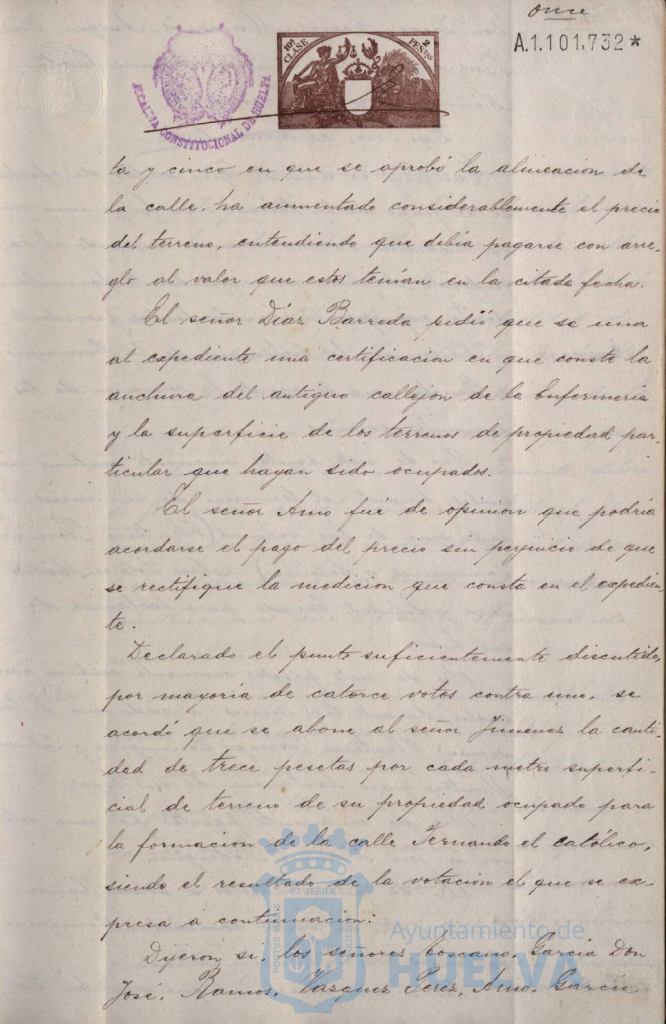 once
A.1.101,732*
10ª CLASE
2 PESETAS
ALCALDIA CONSTITUCIONAL DE HUELVA
ta y cinco en que se aprobó la alineacion de
la calle, ha aumentado considerablemente el precio
del terreno, entendiendo que debía pagarse con arre-
glo al valor que estos tenían en la citada fecha.
El señor Díaz Barreda pidió que se una
al expediente una certificacion en que conste la
anchura del antiguo callejon de la Enfermería
y la superficie de los terrenos de propiedad par-
ticular que hayan sido ocupados.
El señor Amo fué de opinion que podría
acordarse el pago del precio sin perjuicio de que
se rectifique la medicion que consta en el expedien-
te.
Declarado el punto suficientemente discutido,
por mayoría de catorce votos contra uno, se
acordó que se abone al señor Jimenez la canti-
dad de trece pesetas por cada metro superfi-
cial de terreno de su propiedad ocupado para
la formacion de la calle Fernando el católico,
siendo el resultado de la votacion el que se ex-
presa á continuacion:
Dijeron si, los señores Toscano, García Don
José, Ramos, Vazquez Perez, Amo, García
Ayuntamiento de
HUELVA